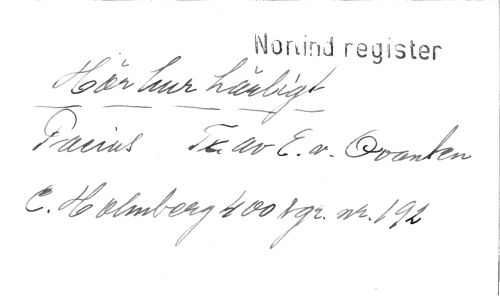 Nomind register
Hör hur härligt
Pacius Tx. av E. v. Qvanten
C. Holmberg 400 sgr. nr. 192